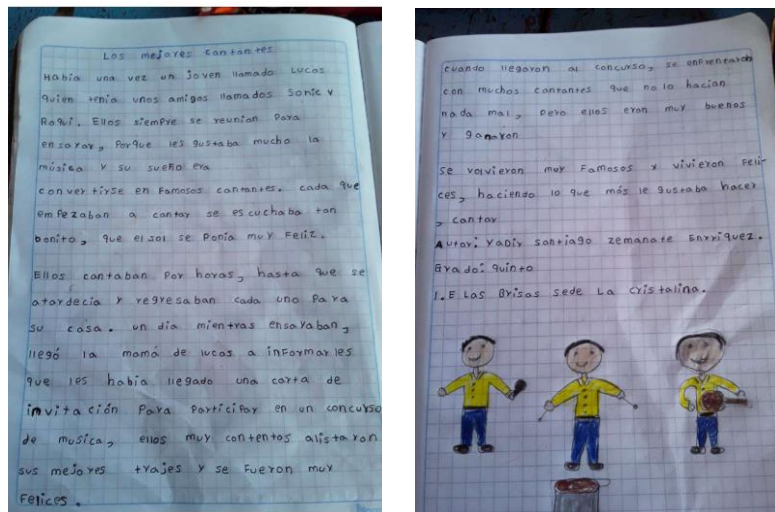 Los mejores cantantes
Había una vez un joven llamado Lucas
quien tenia unos amigos llamados Sonic y
Roqui. Ellos siempre se reunian Para
ensayar, Porque les gustaba mucho la
música y su sueño era
convertirse en Famosos cantantes. cada que
empezaban a cantar se escuchaba tan
bonito, que el sol se Ponia muy Feliz.
Ellos cantaban Por horas, hasta que se
atardecia y regresaban cada uno Para
su casa. un dia mientras ensayaban,
llegó la mamá de lucas a inFormarles
que les había llegado una carta de
invitación Para Participar en un concurso
de musica, ellos muy contentos alistaron
sus mejores trajes y se Fueron muy
Felices.
cuando llegaron al concurso, se enFrentaron
con muchos cantantes que no lo hacian
nada mal, Pero ellos eran muy buenos
y ganaron
se volvieron muy Famosos y vivieron Feli-
ces, haciendo lo que más le gustaba hacer
, cantar
Autor: Yadir santiago zemanate Enrriquez.
Grado: quinto
I.E Las Brisas sede La cristalina.